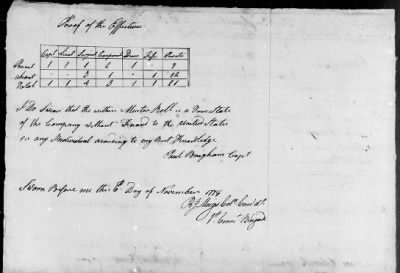 Proof of the Effectives
Capt Lieut Serjent Corporal Drum Fife Privets
Present 1 1 1 2 1 . 9
absent . . 3 1 . 1 12
Total 1 1 4 3 1 1 21
I Do Swear that the within Muster Roll is a True State
of the Company without Fraud to the United States
or any Individual according to my Best Knowledge
Paul Brigham Capt
Sworn Before me the 6th Day of November 1778
R J Meigs Colo Comdt
1st Connt Brigade